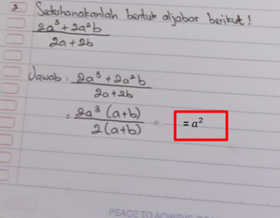 2 Sederhanakanlah bentuk aljabar berikut!
2a³ + 2a²b
2a + 2b
Jawab : 2a³ + 2a²b
2a + 2b
= 2a³ (a+b) = a²
2 (a+b)
PEACE TO ACHIEVE